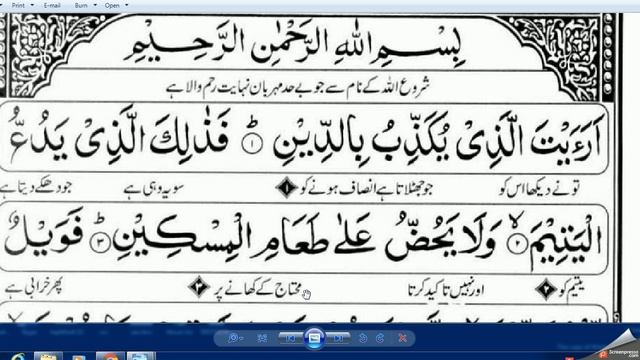 Print E-mail Burn Open
بِسْمِ اللهِ الرَّحْمٰنِ الرَّحِيْمِ
شروع اللہ کے نام سے جو بے حد مہربان نہایت رحم والا ہے
اَرَءَيْتَ الَّذِىْ يُكَذِّبُ بِالدِّيْنِ ؕ﴿۱﴾ فَذٰلِكَ الَّذِىْ يَدُعُّ
تو نے دیکھا اس کو جو جھٹلاتا ہے انصاف ہونے کو ۱ سو یہ وہی ہے جو دھکے دیتا ہے
الْيَتِيْمَ ۙ﴿۲﴾ وَلَا يَحُضُّ عَلٰى طَعَامِ الْمِسْكِيْنِ ؕ﴿۳﴾ فَوَيْلٌ
یتیم کو ۲ اور نہیں تاکید کرتا محتاج کے کھانے پر ۳ پھر خرابی ہے
Screenpresso